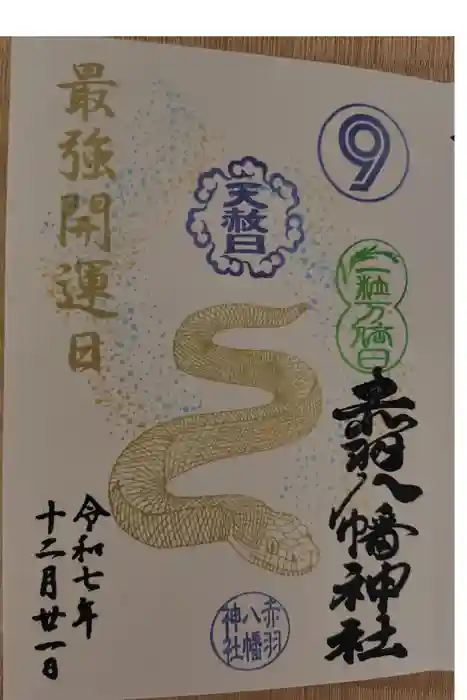 ⑨
一粒万倍日
赤羽八幡神社
天赦日
最強開運日
令和七年
十二月廿一日
赤羽
八幡
神社